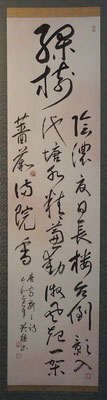 綠樹
陰濃夏日長樓台倒影入
池塘水精簾動微風起一架
薔薇滿院香